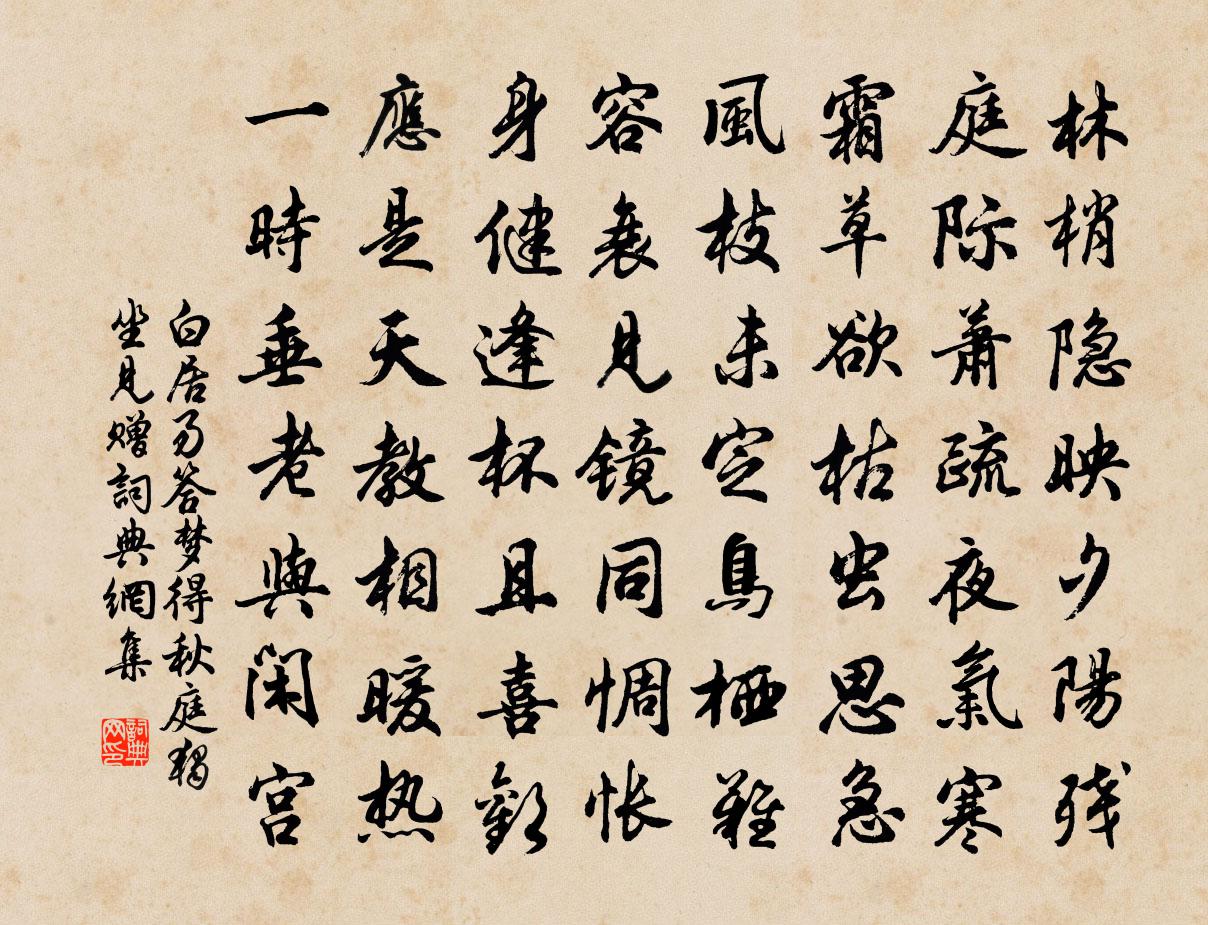 林梢隐映夕陽残
庭际萧疏夜氣寒
霜草欲枯虫思急
風枝未定鳥栖難
容衰見镜同惆怅
身健逢杯且喜歡
應是天教相暖热
一時垂老與闲官
白居易答梦得秋庭獨
坐見赠詞典網集
詞典网印